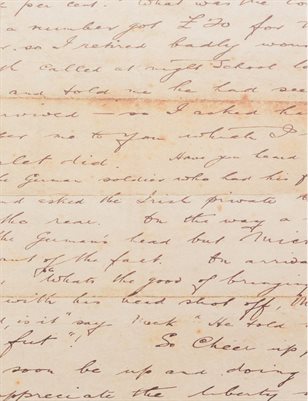 per cent. What was the
a number got £70 for
so I retired badly
called at night School
and told me he had
— so I asked
me to you which I
did. Have you heard
German soldier who had his
and asked the Irish private
the rear. On the way a
the Germans head but Mick
of the fact. On
"Whats the good of
with his head shot off,
is it" say Mick "He told
foot"! So Cheer up,
soon be up and doing
appreciate the liberty